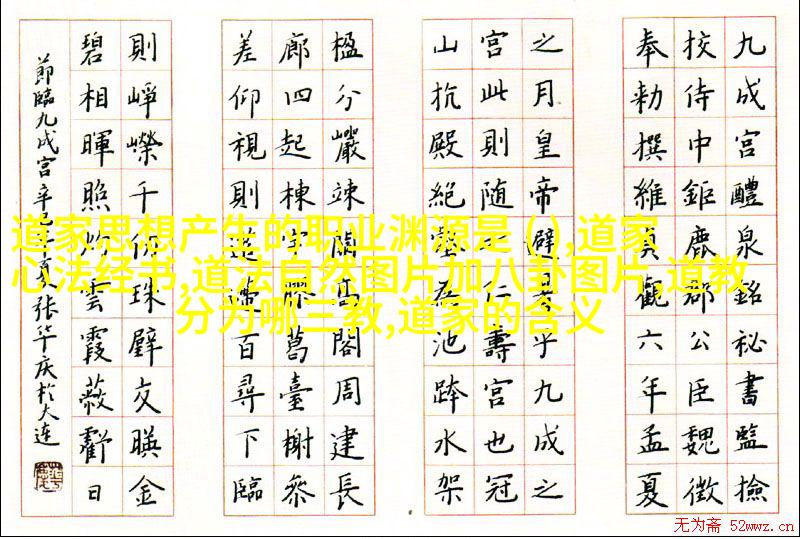 九成宮醴泉銘秘書監撿
挍侍中鉅鹿郡公臣魏徵
奉勑撰維貞觀六年孟夏
之月皇帝避暑乎九成之
宮此則随之仁壽宮也冠
山抗殿絕壑為池跨水架
楹分巖竦闕高閣周建長
廊四起棟宇膠葛臺榭参
差仰視則迢遰百尋下臨
則崢嶸千仞珠璧交暎金
碧相暉照灼雲霞蔽虧日
節臨九成宮辛巳年夏張华庆於大連
道家思想产生的职业渊源是 ( ),道家
心法经书,道法自然图片加八卦图片,道教
分为哪三教,道家的含义
无为斋 52wwz.cn